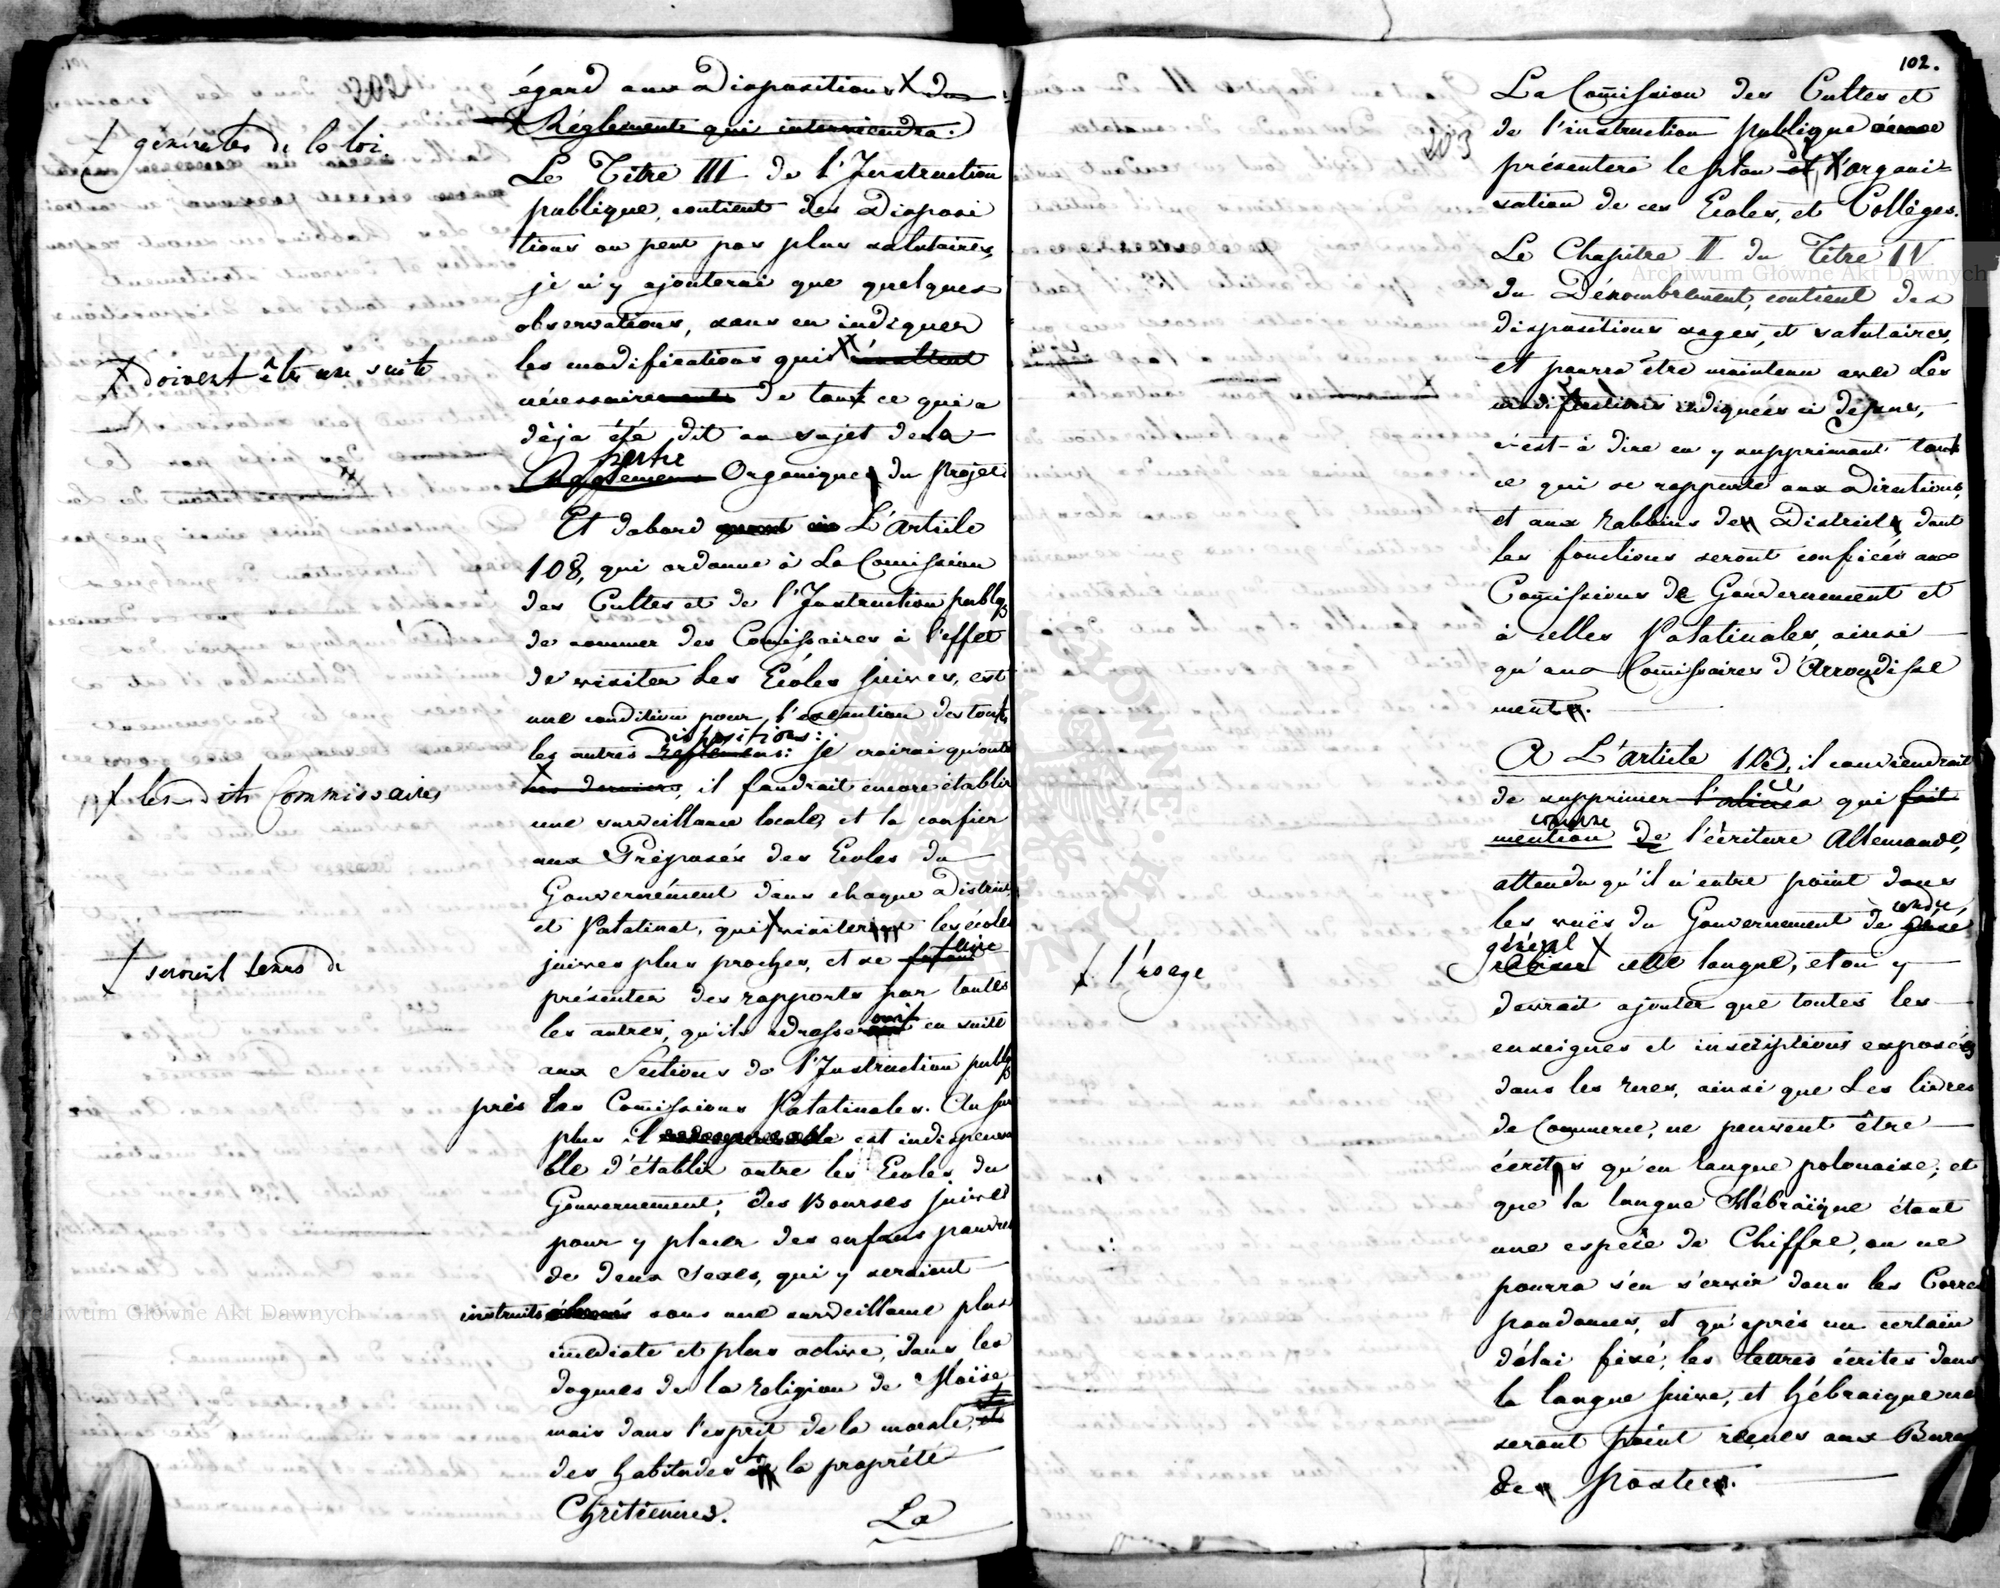 202
égard aux Dispositions X du
Réglement qui interviendra.)
X générales de la loi
Le Titre III de l'Instruction
publique, contient des Disposi
tions on peut pas plus salutaires,
je n'y ajouterai que quelques
observations, sans en indiquer
les modifications qui X résultent
X doivent être une suite
nécessairement de tout ce qui a
déja été dit au sujet de la
partie
Organique du Projet
Et dabord quant au L'article
108, qui ordonne à La Comission
des Cultes et de l'Instruction publq
de nommer des Comissaires à l'effet
de visiter Les Ecoles juives, est
une condition pour l'exécution de toutes
dispositions:
les autres je croirai qu'outre
X les dits Commissaires
ces derniers, il faudrait encore établir
une surveillance locale, et la confier
aux Préposés des Ecoles du
Gouvernément dans chaque District
et Palatinat, qui X visiteront les écoles
X seroient tenus de
juives plus proches, et se faire
présenter des rapports par toutes
les autres, qu'ils adresseroient en suite
aux Sections de l'Instruction publq
près les Comissions Palatinales. Au sur
plus il est indispensa
ble d'établir outre les Ecoles du
Gouvernement, des Bourses juives
pour y placer des enfans pauvres
de deux Sexes, qui y seraient
instruits élevés sous une surveillance plus
imédiate et plus active, dans les
dogmes de la religion de Moïse
mais dans l'esprit de la morale, et
des habitudes et la propriété
Chrétiennes.
La
102.
203
La Comission des Cultes et
de l'instruction publique
présentera le plan d'organi=
sation de ces Ecoles, et Collèges.
Le Chapitre II du Titre IV
du Dénombrement, contient des
dispositions sages, et salutaires,
et pourra être maintenu avec Les
modifications indiquées ci dessus,
c'est-à dire en y supprimant tout
ce qui se rapporte aux Directions,
et aux Rabbins de District, dont
les fonctions seront confiées aux
Comissions de Gouvernement et
à celles Palatinales, ainsi
qu'aux Comissaires d'Arrondisse
ment.
A L'article 103, il conviendrait
de supprimer l'alinéa qui fait
comme
mention de l'écriture Allemande,
attendu qu'il n'entre point dans
les vuës du Gouvernement de rendre
général X cette langue, et on y
X l'usage
devrait ajouter que toutes les
enseignes et inscriptions exposées
dans les rues, ainsi que Les livres
de Commerce, ne peuvent être
écrits qu'en langue polonaise; et
que la langue Hébraïque étant
une espèce de Chiffre, on ne
pourra s'en servir dans les Corres
pondances, et qu'après un certain
délai fixé, les lettres écrites dans
la langue juive, et hébraique ne
seront point reçues aux Bureau
de Postes.
Archiwum Główne Akt Dawnych
Archiwum Główne Akt Dawnych